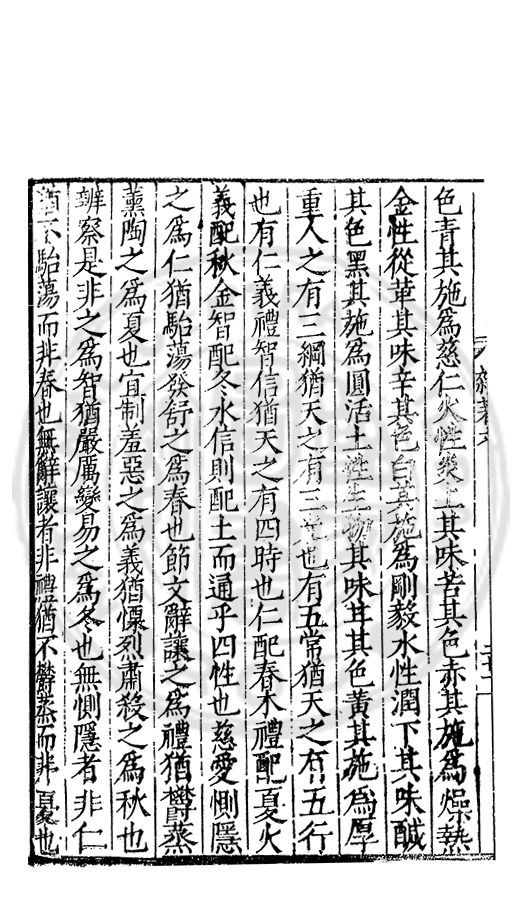 雜著六
色青其施爲慈仁火性炎上其味苦其色赤其施爲燥熱
金性從革其味辛其色白其施爲剛毅水性潤下其味鹹
其色黑其施爲圓活土性生物其味甘其色黃其施爲厚
重人之有三綱猶天之有三光也有五常猶天之有五行
也有仁義禮智信猶天之有四時也仁配春木禮配夏火
義配秋金智配冬水信則配土而通乎四性也慈愛惻隱
之爲仁猶駘蕩發舒之爲春也節文辭讓之爲禮猶欝蒸
薰陶之爲夏也宜制羞惡之爲義猶慄烈肅殺之爲秋也
辨察是非之爲智猶嚴厲變易之爲冬也無惻隱者非仁
猶不駘蕩而非春也無辭讓者非禮猶不欝蒸而非夏也